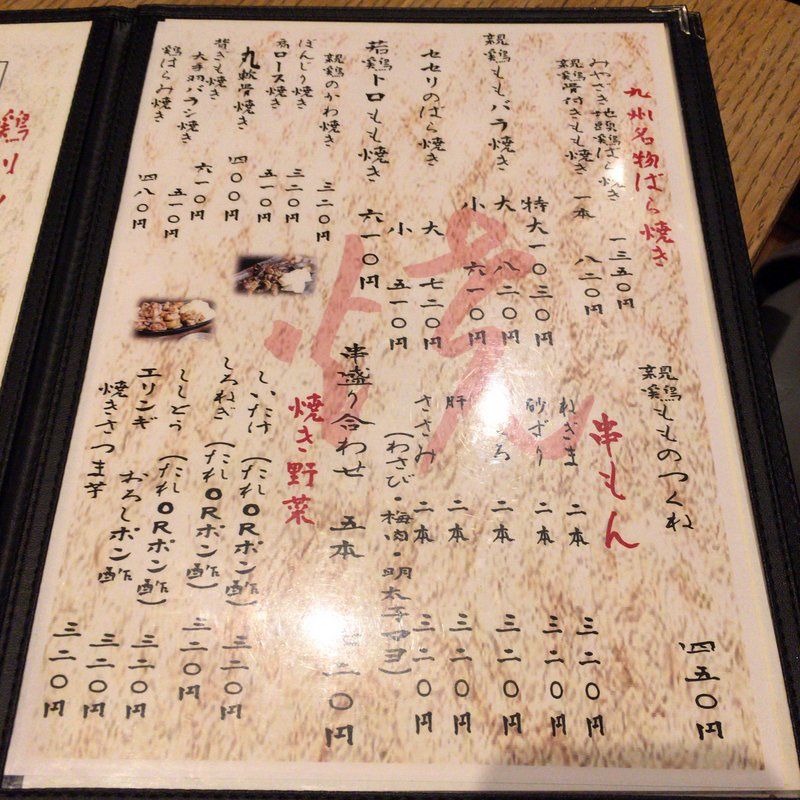 九州名物ばら焼き
みやざき地頭鶏ばら焼き 一三五〇円
親鶏骨付きもも焼き 一本 八二〇円
親鶏ももバラ焼き 特大 一〇三〇円
大 八二〇円
小 六一〇円
セセリのばら焼き 大 七二〇円
小 五一〇円
若鶏トロもも焼き 六一〇円
親鶏のかわ焼き 三二〇円
ぼんじり焼き 三二〇円
肩ロース焼き 五一〇円
丸軟骨焼き 四〇〇円
背ぎも焼き 六一〇円
大手羽バラシ焼き 五一〇円
鶏はらみ焼き 四八〇円
親鶏もものつくね 四五〇円
串もん
ねぎま 二本 三二〇円
砂ずり 二本 三二〇円
ろ 二本 三二〇円
肝 二本 三二〇円
ささみ 二本 三二〇円
(わさび・梅肉・明太子マヨ)
串盛り合わせ 五本 二〇円
焼き野菜
しいたけ(だしORポン酢) 三二〇円
しろねぎ(たれORポン酢) 三二〇円
ししとう(たれORポン酢) 三二〇円
エリンギ おろしポン酢 三二〇円
焼きさつま芋 三二〇円
焼
鶏